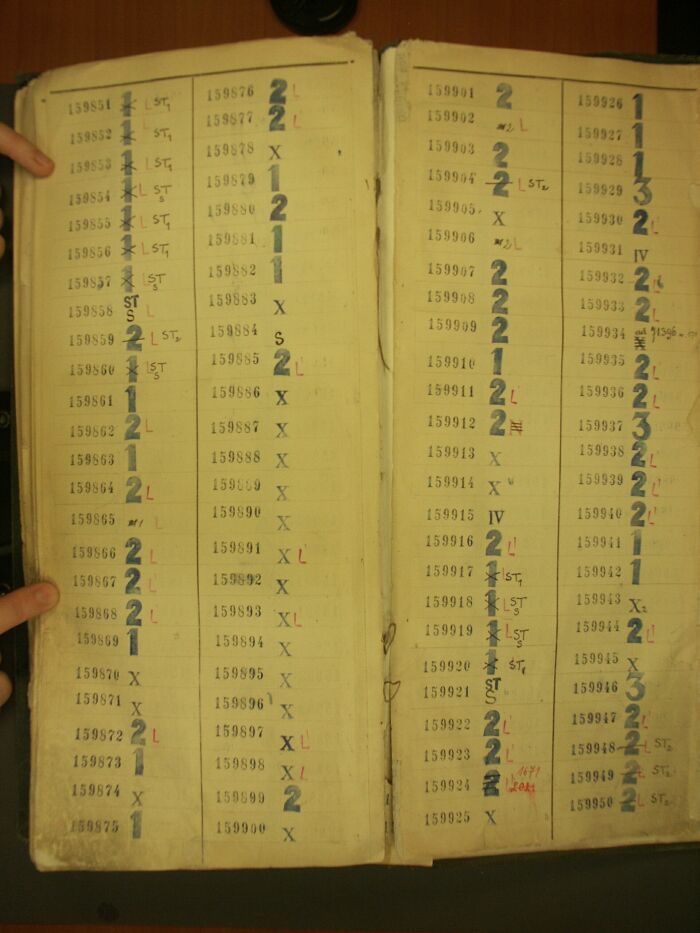 159851 1 L ST1
159852 1 L ST1
159853 1 L ST1
159854 1 L ST S
159855 1 L ST1
159856 1 L ST1
159857 1 L ST S
159858 ST S L
159859 2 L ST2
159860 1 L ST S
159861 1
159862 2 L
159863 1
159864 2 L
159865 L
159866 2 L
159867 2 L
159868 2 L
159869 1
159870 X
159871 X
159872 2 L
159873 1
159874 X
159875 1
159876 2 L
159877 2 L
159878 X
159879 1
159880 2
159881 1
159882 1
159883 X
159884 S
159885 2 L
159886 X
159887 X
159888 X
159889 X
159890 X
159891 X L
159892 X
159893 X L
159894 X
159895 X
159896 X
159897 X L
159898 X L
159899 2
159900 X
159901 2
159902 L
159903 2
159904 2 L ST2
159905 X
159906 L
159907 2
159908 2
159909 2
159910 1
159911 2 L
159912 2
159913 X
159914 X
159915 IV
159916 2 L
159917 1 L ST1
159918 1 L ST S
159919 1 L ST S
159920 1 ST1
159921 ST S
159922 2 L
159923 2 L
159924 2 L
159925 X
159926 1
159927 1
159928 1
159929 3
159930 2 L
159931 IV
159932 2
159933 2 L
159934
159935 2 L
159936 2 L
159937 3
159938 2 L
159939 2 L
159940 2 L
159941 1
159942 1
159943 X2
159944 2 L
159945 X
159946 3
159947 2 L
159948 2 L ST2
159949 2 L ST2
159950 2 L ST2